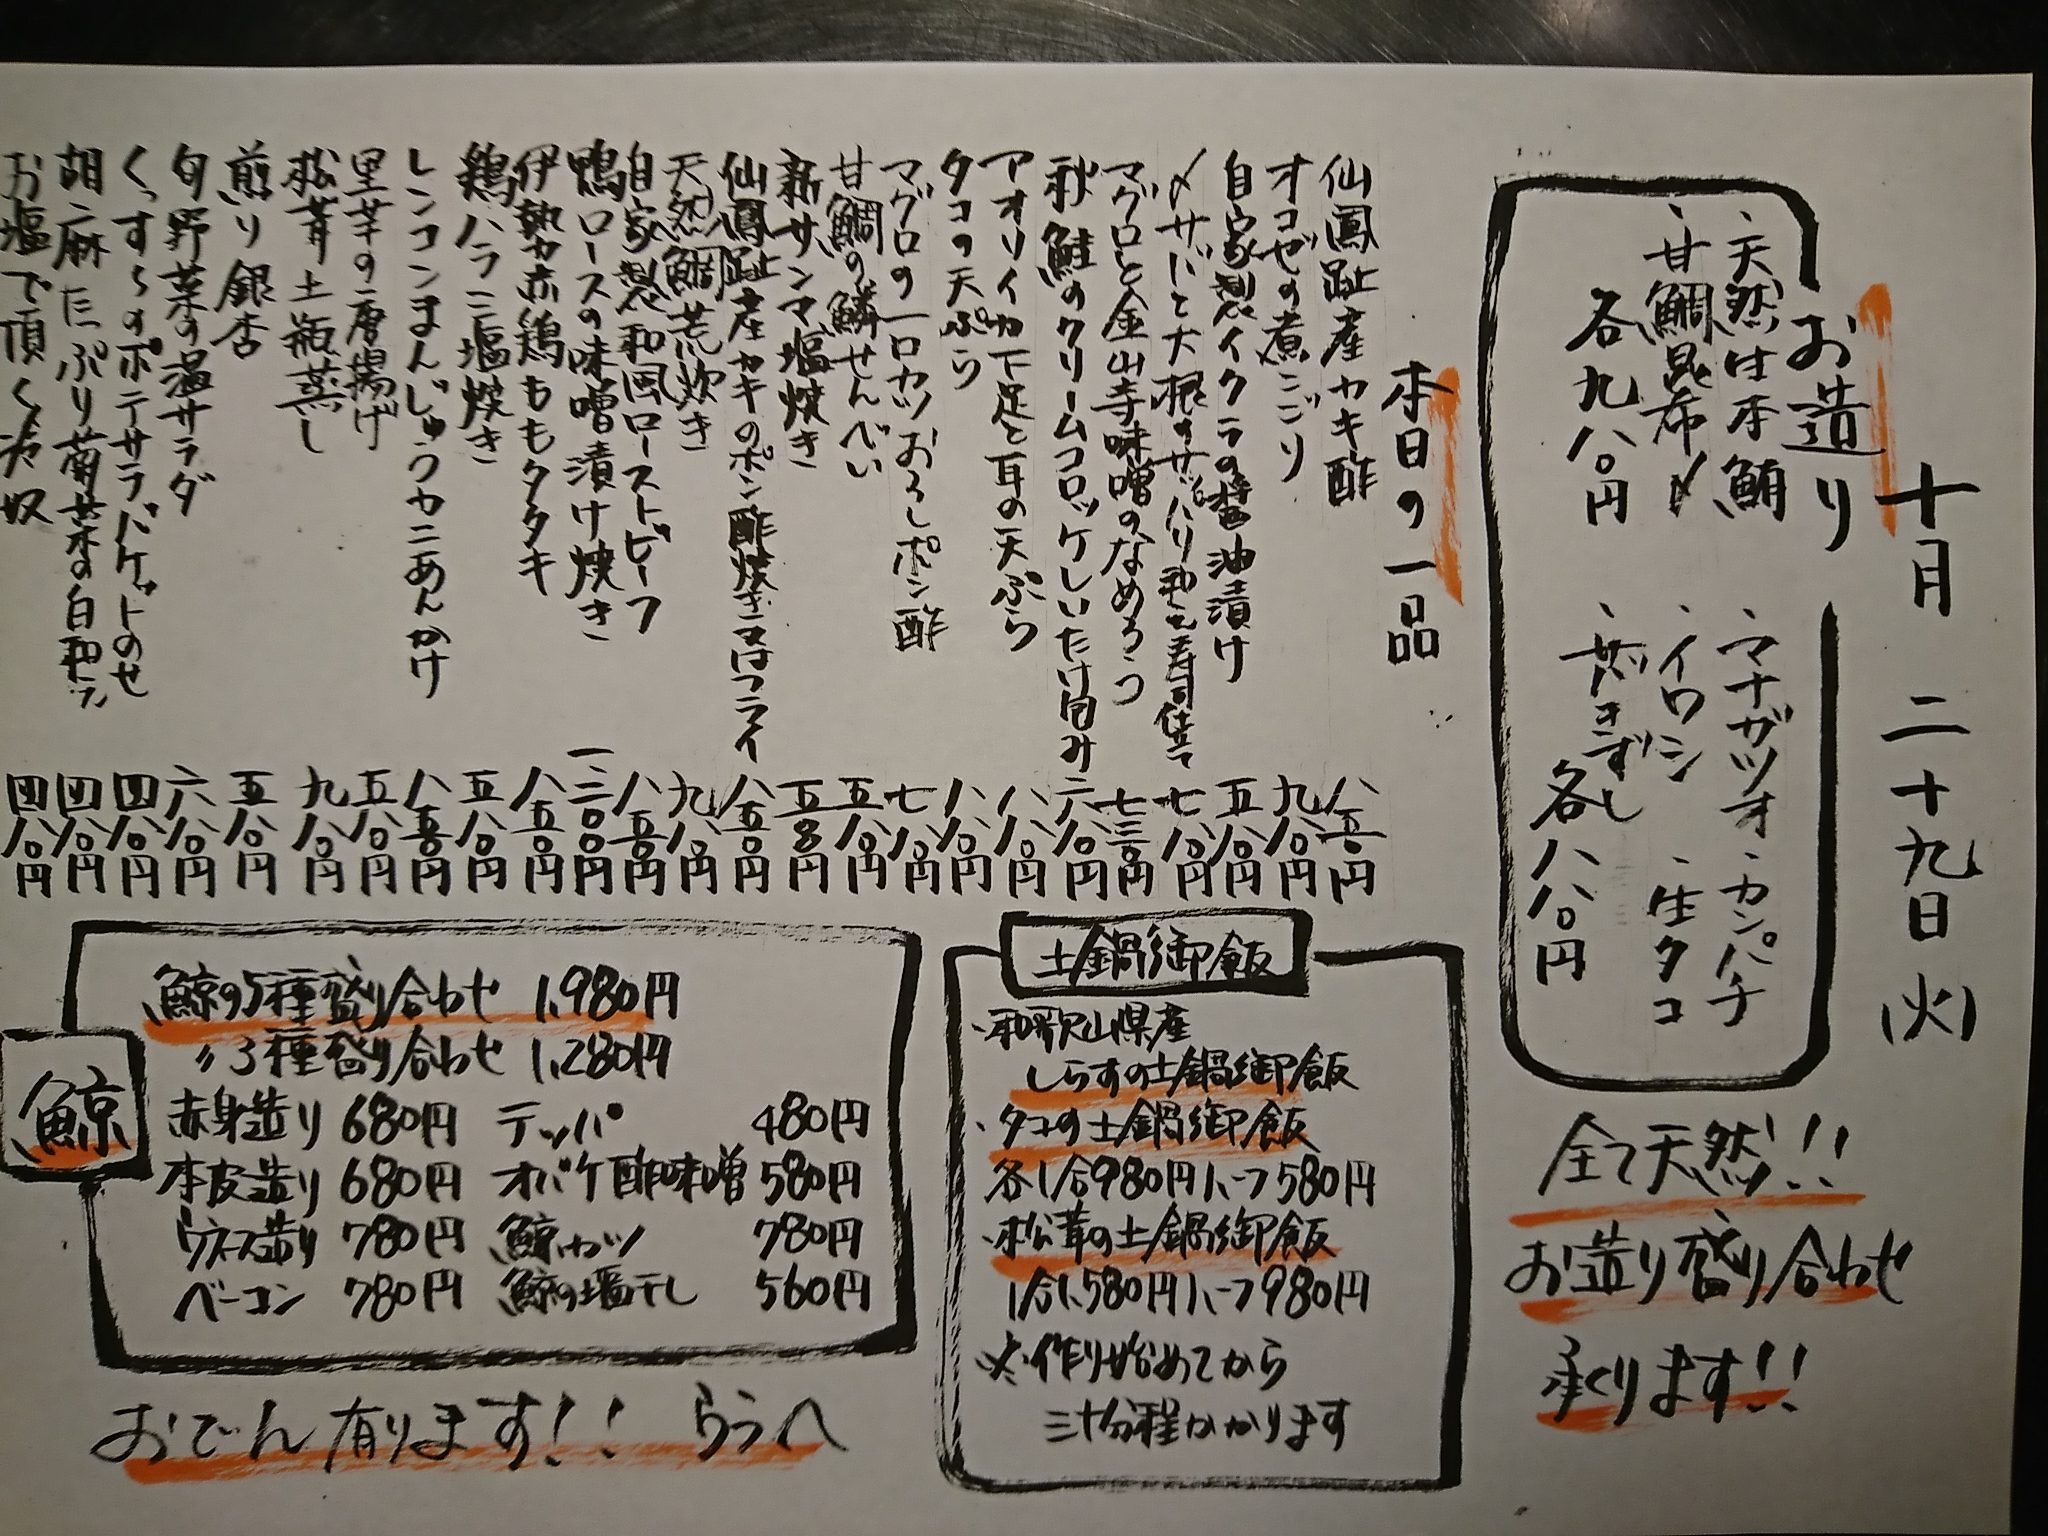 十月二十九日(火)
お造り
、天然は本鮪
、甘鯛昆布〆
各九八〇円
、マナガツオ、カンパチ
、イワシ、生タコ
、焼きずし
各八八〇円
全て天然!!
お造り盛り合わせ
承ります!!
本日の一品
仙鳳趾産カキ酢 八五〇円
オコゼの煮こごり 九八〇円
自家製イクラの醤油漬け 五八〇円
〆サバと大根のサッパリ和え寿司仕立て 七八〇円
マグロと金山寺味噌のなめろう 七三〇円
秋鮭のクリームコロッケしいたけ包み 二八〇円
アオリイカ下足と耳の天ぷら 八八〇円
タコの天ぷら 八八〇円
マグロの一口カツおろしポン酢 七八〇円
甘鯛の鱗せんべい 五八〇円
新サンマ塩焼き 五五〇円
仙鳳趾産カキのポン酢焼き又はフライ 八五〇円
天然鯛荒炊き 九八〇円
自家製和風ローストビーフ 八五〇円
鴨ロースの味噌漬け焼き 一、三〇〇円
伊勢赤鶏ももタタキ 八五〇円
鶏ハラミ塩焼き 五八〇円
レンコンまんじゅうカニあんかけ 八五〇円
里芋の唐揚げ 五八〇円
松茸土瓶蒸し 九八〇円
煎り銀杏 五八〇円
旬野菜の温サラダ 六八〇円
くっすーのポテサラバケットのせ 四八〇円
胡麻たっぷり菊菜の白和え 四八〇円
お塩で頂く冷奴 四八〇円
土鍋御飯
・和歌山県産
しらすの土鍋御飯
・タコの土鍋御飯
各1合980円ハーフ580円
・松茸の土鍋御飯
1合1,580円ハーフ980円
※作り始めてから
三十分程かかります
鯨
鯨の5種盛り合わせ 1,980円
〃3種盛り合わせ 1,280円
赤身造り 680円 テッパ 480円
本皮造り 680円 オバケ酢味噌 580円
ウネース造り 780円 鯨カツ 780円
ベーコン 780円 鯨の塩干し 560円
おでん有ります!! うらへ